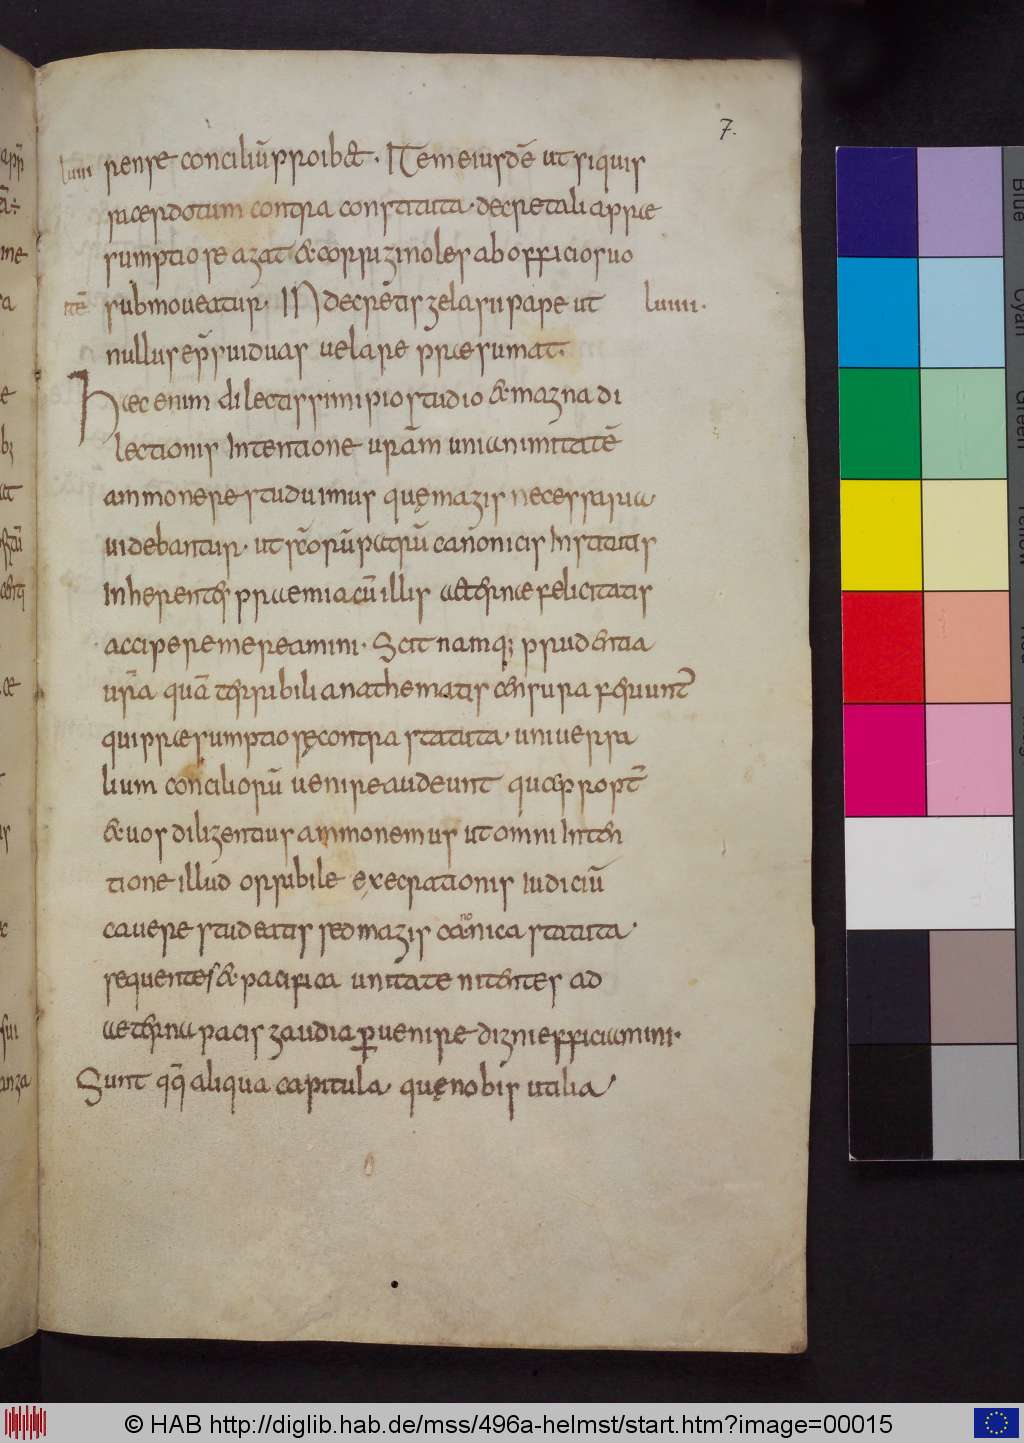 7.
luiii rense conciliū proibet. Item eiusdē ut siquis
sacerdotum contra constituta. decretalia prae
sumptiose agat & corrigi nolens ab officio suo
itē submoveatur. IN decretis gelasii pape ut luiiii.
nullus epꝭ viduas velare praesumat.
Haec enim dilectissimi pio studio & magna di
lectionis Intentione urām unianimitatē
ammonere studuimus quę magis necessaria
videbantur. ut sc̄orū patrū canonicis Institutis
Inherentes praemia cū illis aeternae felicitatis
accipere mereamini. Scit namq; prudentia
ur̄a quā terribili anathematis censura feriunt̄
qui praesumptiosę contra statuta. universa
lium conciliorū venire audeunt quapropt̄
& vos diligentius ammonemus ut omni Inten
tione illud orribile exęcrationis Iudiciū
cavere studeatis sed magis canonica statuta.
sequentes & pacifica unitate nitentes ad
aeterna pacis gaudia ꝑvenire digni efficiamini.
Sunt qq̄ aliqua capitula quę nobis utilia
© HAB http://diglib.hab.de/mss/496a-helmst/start.htm?image=00015
Blue
Cyan
Green
Yellow